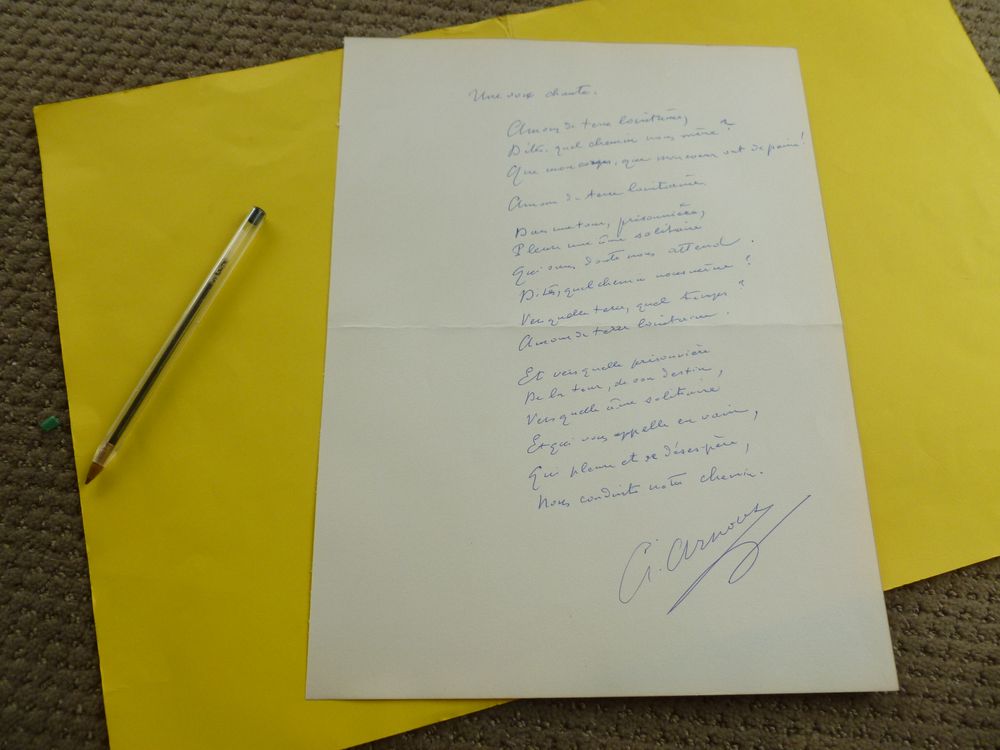 Une voix chante.
Amour de terre lointaine,
Dites, quel chemin nous mène ?
Que mon corps, que mon coeur ont de peine !
Amour de terre lointaine.
Dans une tour, prisonnière,
Pleure une âme solitaire
Qui sans doute nous attend.
Dites, quel chemin nous mène ?
Vers quelle terre, quel temps ?
Amour de terre lointaine.
Et vers quelle prisonnière
De la tour, de son destin,
Vers quelle âme solitaire
Et qui vous appelle en vain,
Qui pleure et se désespère,
Nous conduit notre chemin.
A. Arnoux